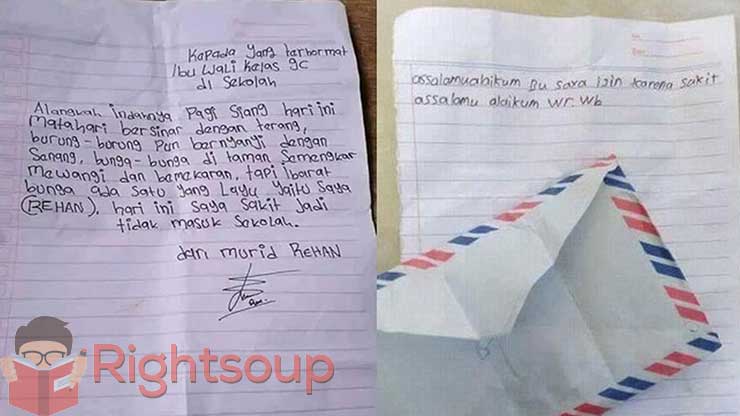 Kapada yang tarbormat
Ibu Wali Kelas 9C
di Sekolah
Alangkah indahnya Pagi Siang hari ini
Matahari bersinar dengan terang,
burung-borong Pun bernyanyi dengan
Sanang, bunga-bunga di taman Semengkar
Mewangi dan bemekaran, tapi Ibarat
bunga ada satu yang Layu yaitu Saya
(REHAN). hari ini saya sakit Jadi
tidak masuk Sekolah.
dari murid REHAN
Rightsoup
assalamuabikum Bu saya Izin karena sakit
assalamu alaikum Wr. Wb